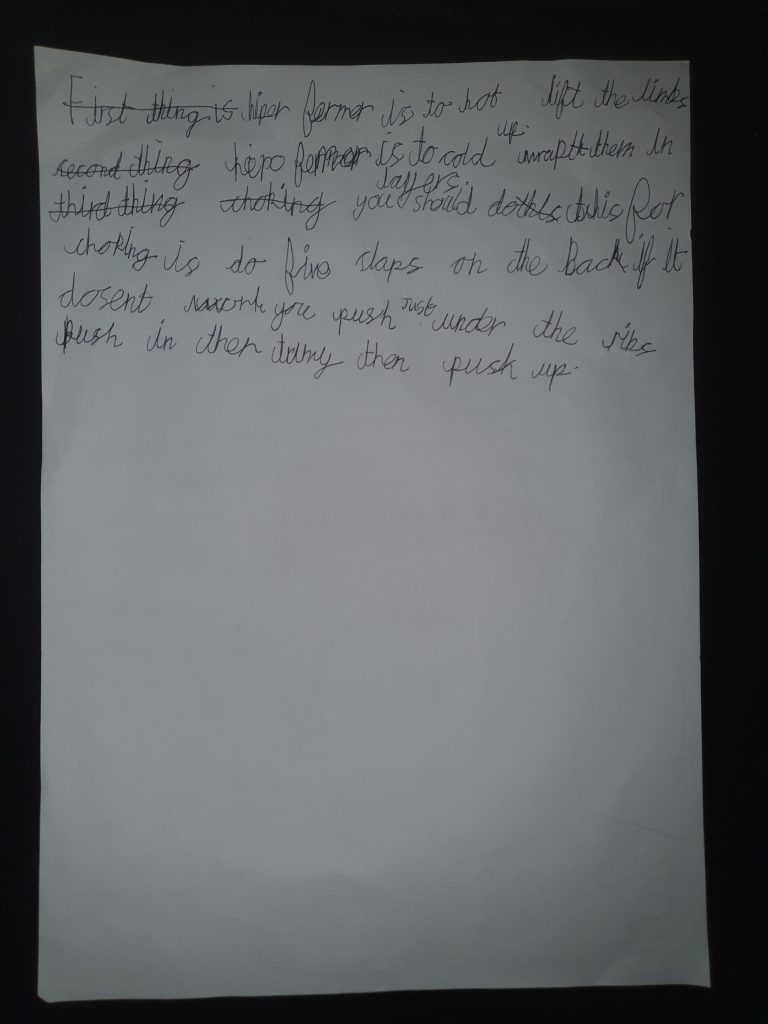 First thing is hiper fermer is to hot lift the limbs
up.
second thing hipo fermer is to cold wrap them in
layyers.
third thing choking you should do this for
choking is do five slaps on the back if it
dosent work you push just under the ribs
push in then tumy then push up.